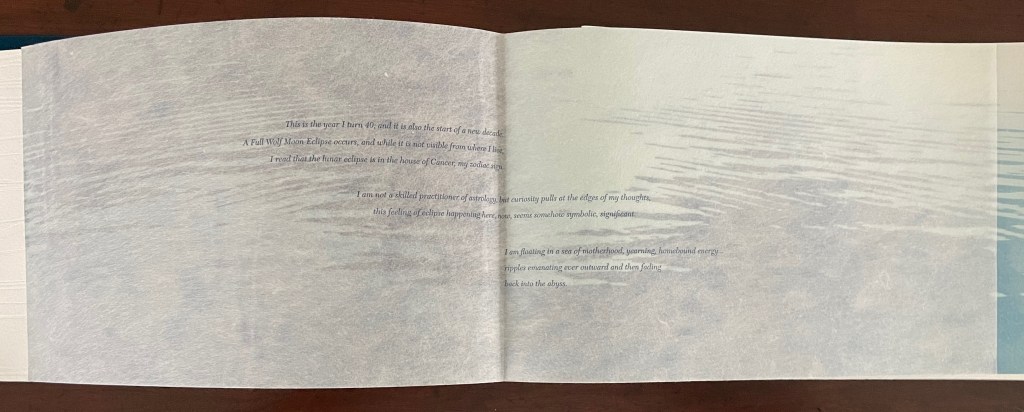 This is the year I turn 40; and it is also the start of a new decade.
A Full Wolf Moon Eclipse occurs, and while it is not visible from where I live,
I read that the lunar eclipse is in the house of Cancer, my zodiac sign.
I am not a skilled practitioner of astrology, but curiosity pulls at the edges of my thoughts,
this feeling of eclipse happening here, now, seems somehow symbolic, significant.
I am floating in a sea of motherhood, yearning, homebound energy
ripples emanating ever outward and then fading
back into the abyss.